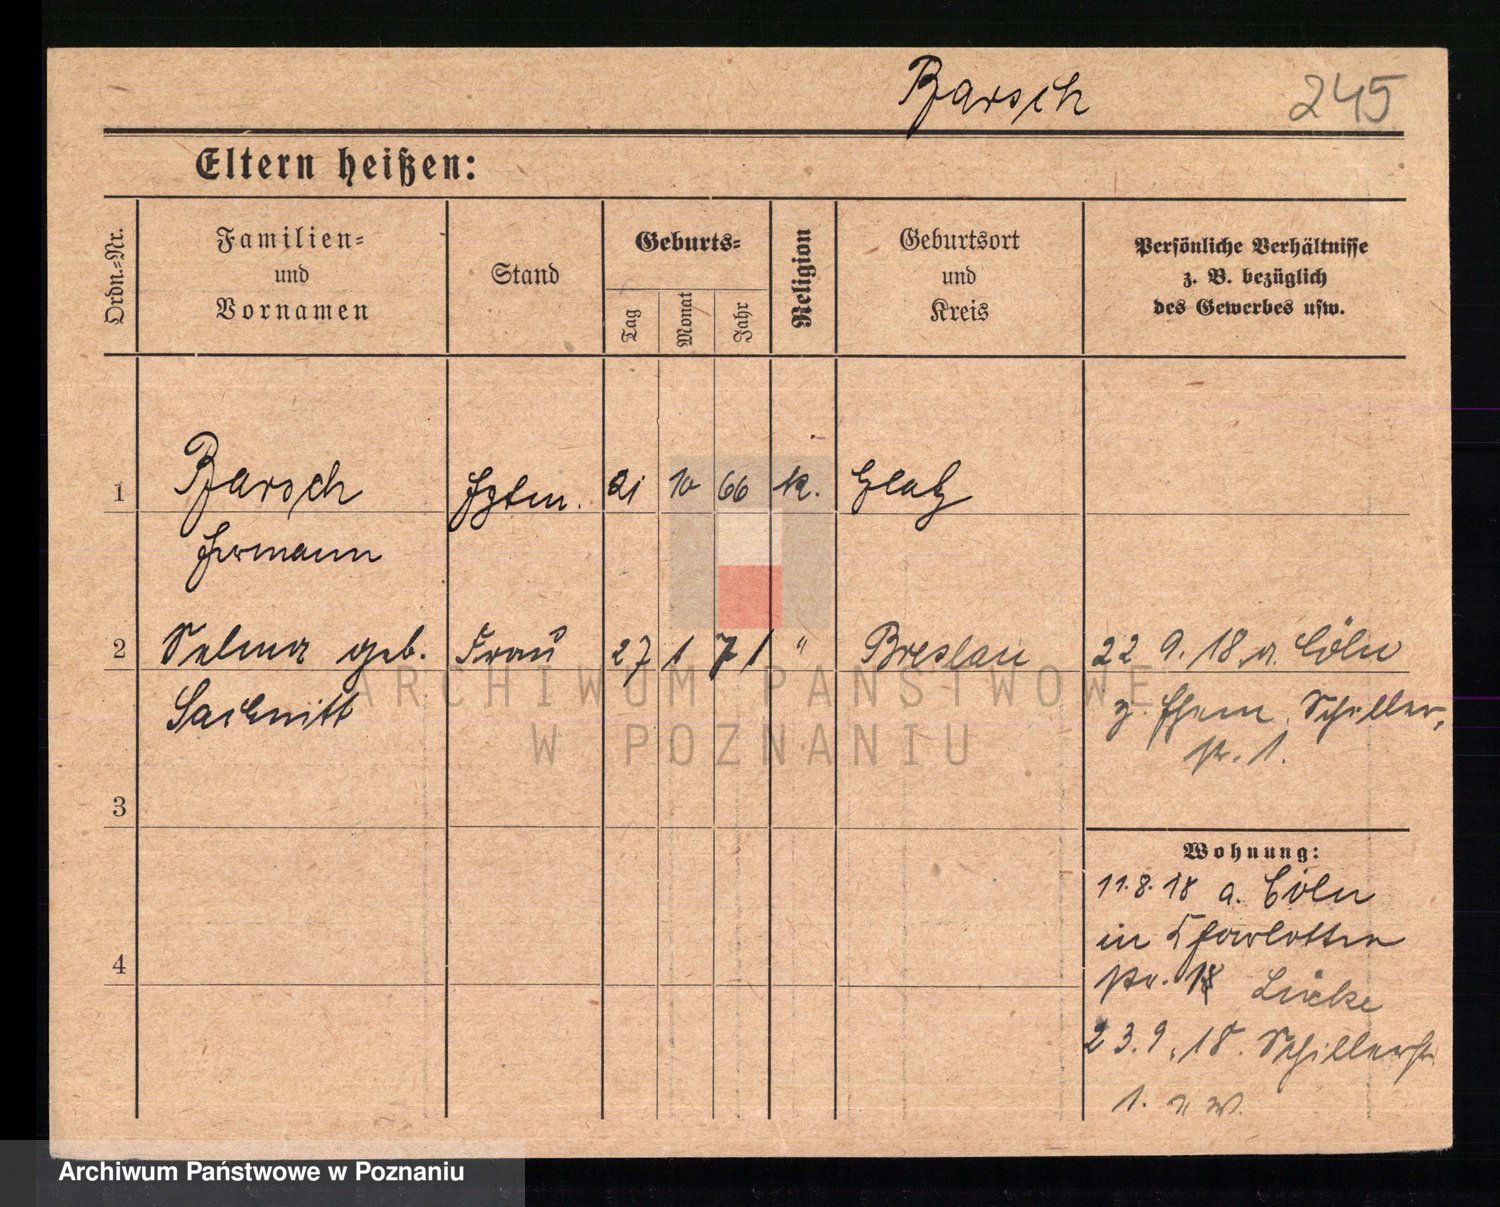 Barsch 245
Eltern heißen:
Ordn.-Nr.
Familien-
und
Vornamen
Stand
Geburts-
Tag
Monat
Jahr
Religion
Geburtsort
und
Kreis
Persönliche Verhältnisse
z. B. bezüglich
des Gewerbes usw.
1 Barsch Hptm. 21 10 66 k. Glatz
Hermann
2 Selma geb. Frau 27 1 71 " Breslau 22 9. 18. a. Cöln
z. Ehem. Schiller,
str. 1.
3
Wohnung:
11.8.18 a. Cöln
in Charlotten
str. 18 Lücke
4
23.9.18. Schillerstr
1.
ARCHIWUM PAŃSTWOWE
W POZNANIU
Archiwum Państwowe w Poznaniu